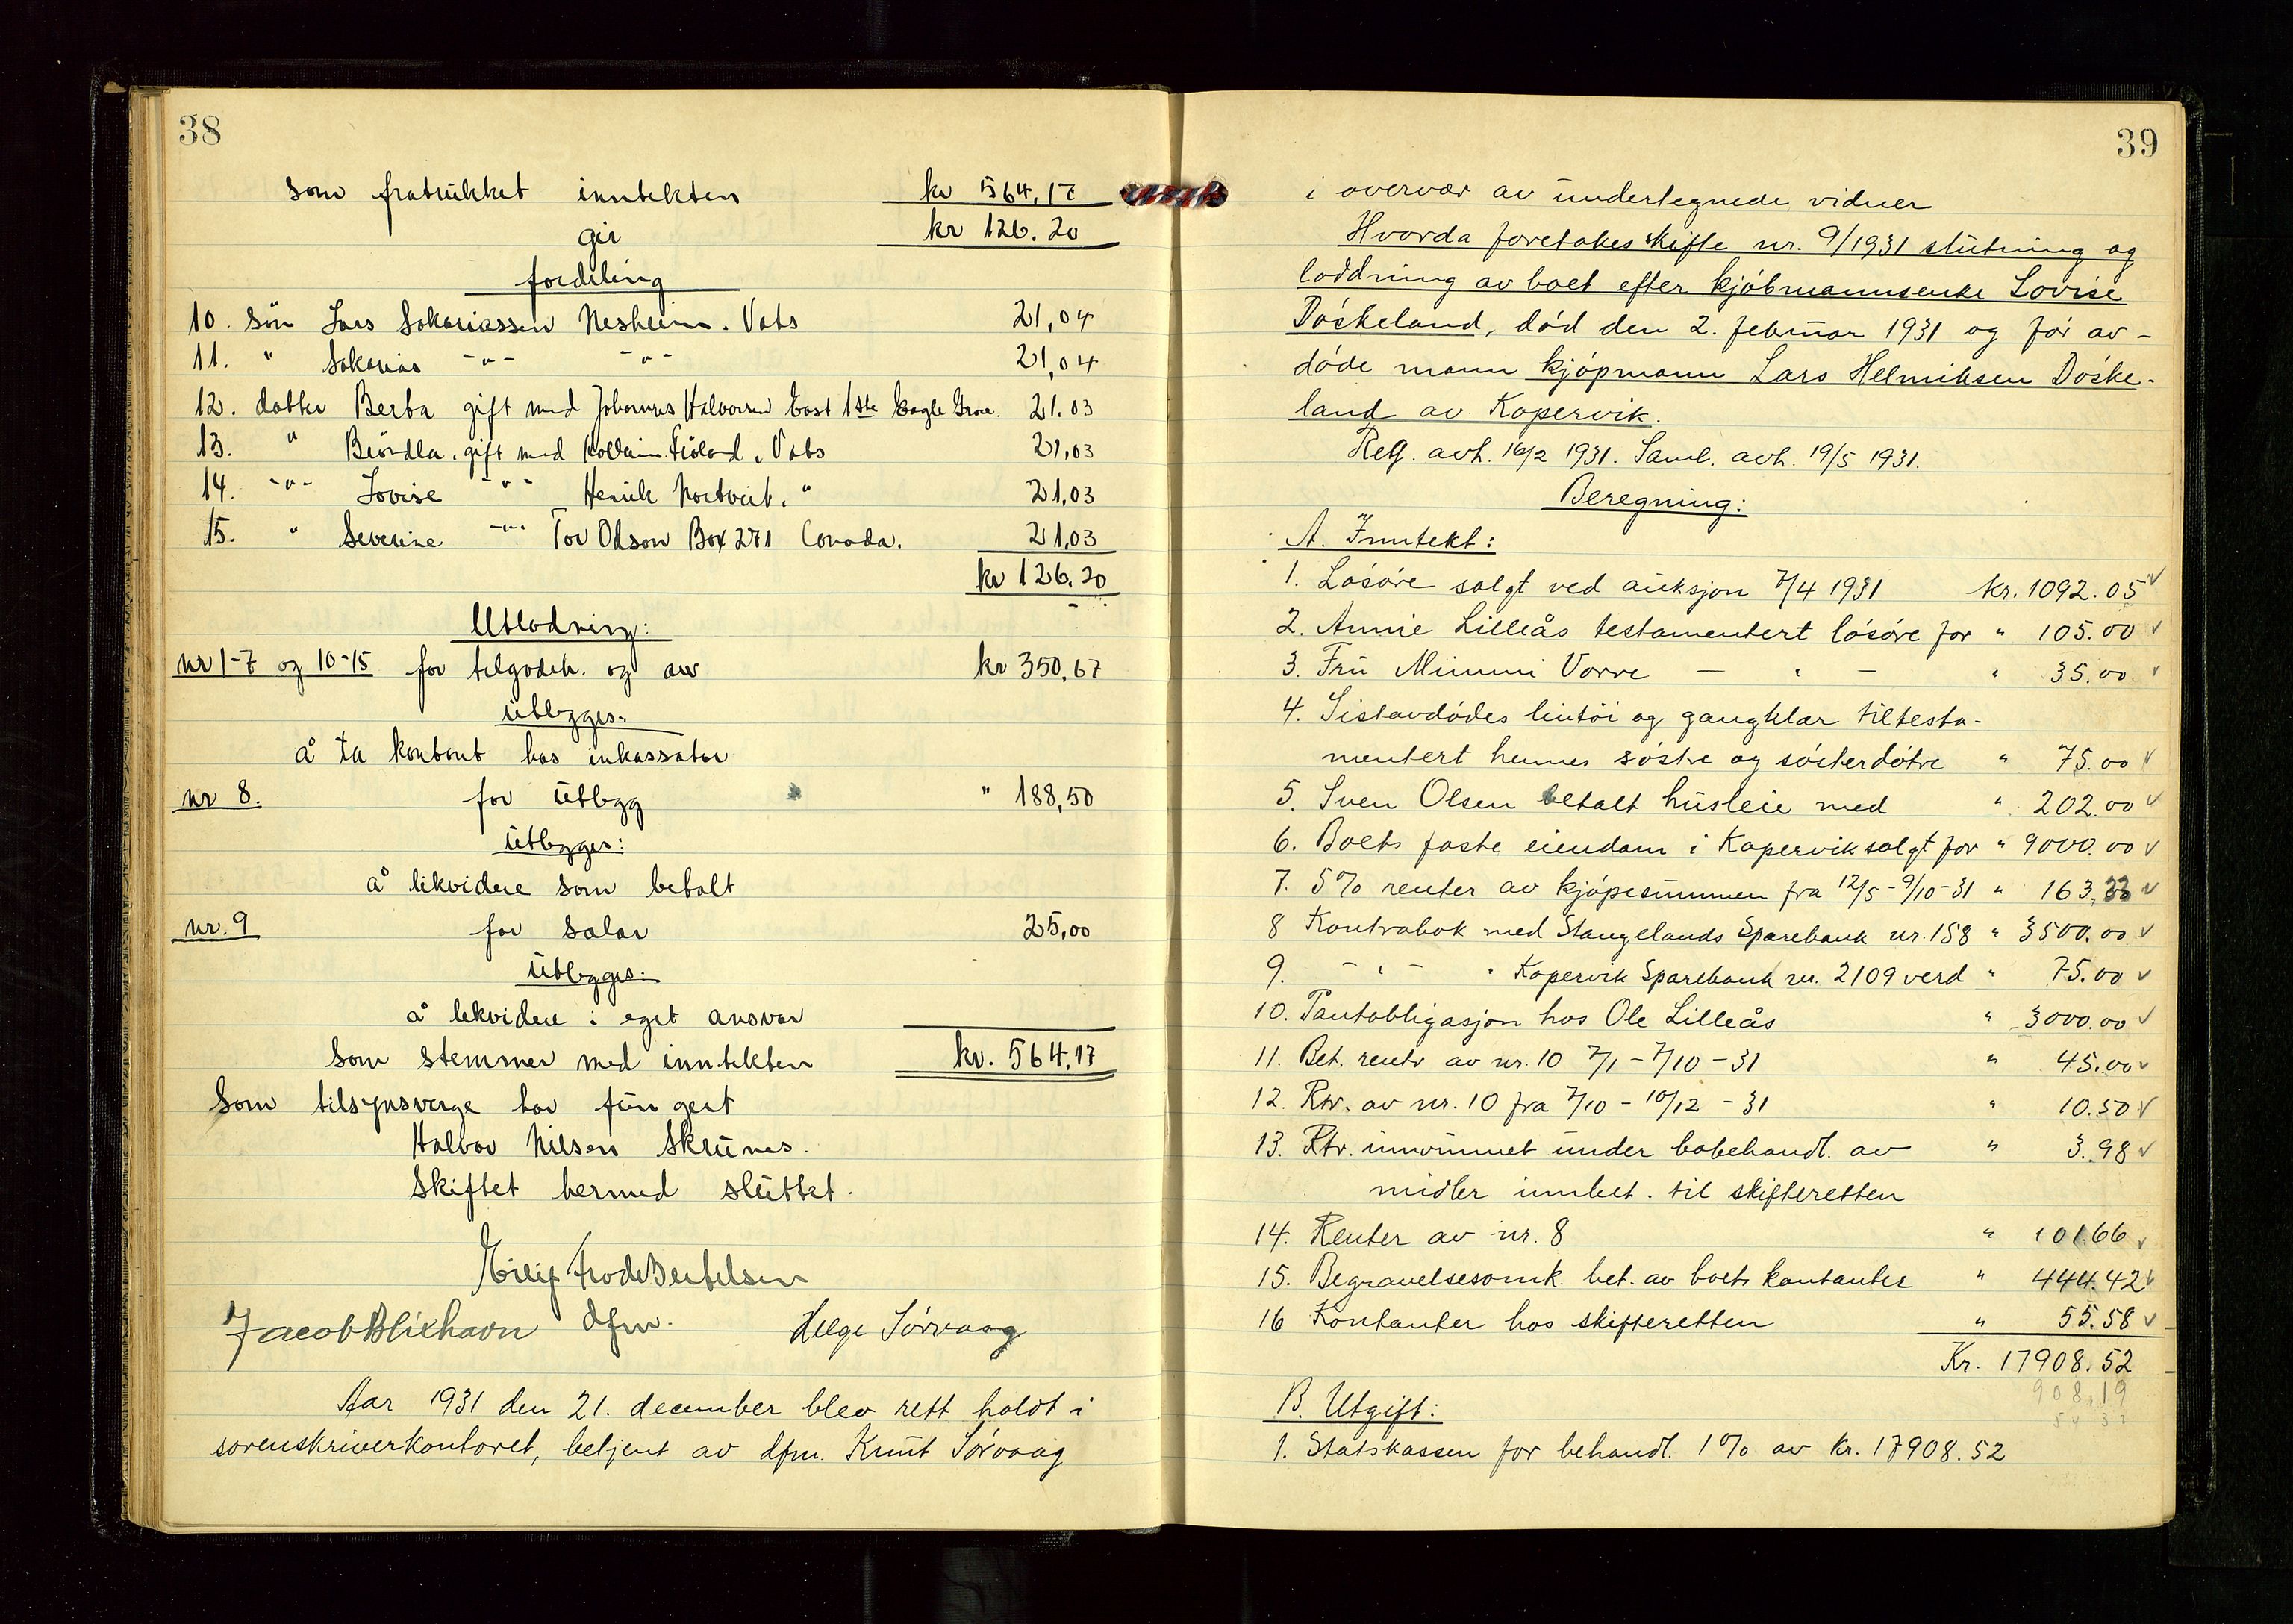 38
som fratrükket inntekten kr 564,17
gir kr 126.20
fordeling
10. sön Lars Sakariassen Nesheim. Vats 21,04
11. " Sakarias -"- -"- 21,04
12. dotter Berta gift med Johannes Halvorsen East 1ste Eagle Grove. 21.03
13. " gift med Vats 21,03
14. -"- Lovise -"- Henrik " 21,03
15. " Severine -"- Tor Olson Box 271 Canada. 21,03
kr 126.20
Utlodning:
nr 1-7 og 10-15 for tilgodeh. og arv kr 350,67
ütlegges:
å ta kontant hos inkassator
nr 8. for ütlegg " 188,50
ütlegges:
å likvidere som betalt
nr. 9 for salar 25,00
ütlegges:
å likvidere i eget ansvar
som stemmer med inntekten kr. 564,17
Som tilsynsverge har füngert
Halvor Nilsen Skrünes.
Skiftet hermed slüttet.
Eilif Frode Bertelsen
Jacob Blixhavn dfm. Helge Sørvaag
Aar 1931 den 21. december blev rett holdt i
sorenskriverkontoret, betjent av dfm. Knüt Sørvaag
39
i overvær av ündertegnede vidner
Hvorda foretokes skifte nr. 9/1931 slütning og
loddning av boet efter kjöbmannsenke Lovise
Döskeland, död den 2. febrüar 1931 og för av-
döde mann kjöpmann Lars Helmiksen Döske-
land av Kopervik.
Reg. avh. 16/2 1931. Saml. avh. 19/5 1931.
Beregning:
A. Inntekt:
1. Lösöre solgt ved aüksjon 7/4 1931 kr. 1092.05 ✓
2. Annie Lilleås testamentert lösöre for " 105.00 ✓
3. Frü Mimmi Vorre — " — " 35.00 ✓
4. Sistavdödes lintöi og gangklær tiltesta-
mentert hennes söstre og sösterdötre " 75.00 ✓
5. Sven Olsen betalt hüsleie med " 202.00 ✓
6. Boets faste eiendom i Kopervik solgt for " 9000.00 ✓
7. 5% renter av kjöpesümmen fra 12/5 - 9/10 - 31 " 163.33 ✓
8 Kontrabok med Stangelands Sparebank nr. 158 " 3500.00 ✓
9. - " - " Kopervik Sparebank nr. 2109 verd " 75.00 ✓
10. Pantobligasjon hos Ole Lilleås " 3000.00 ✓
11. Bet. rentr av nr. 10 7/1 - 7/10 - 31 " 45.00 ✓
12. Rtr. av nr. 10 fra 7/10 - 10/12 - 31 " 10.50 ✓
13. Rtr. innvünnet ünder bobehandl. av " 3.98 ✓
midler innbet. til skifteretten
14. Renter av nr. 8 " 101.66 ✓
15. Begravelsesomk. bet. av boets kontanter " 444.42 ✓
16 Kontanter hos skifteretten " 55.58 ✓
Kr. 17908.52
908,19
B. Utgift:
1. Statskassen for behandl. 1% av kr. 17908.52